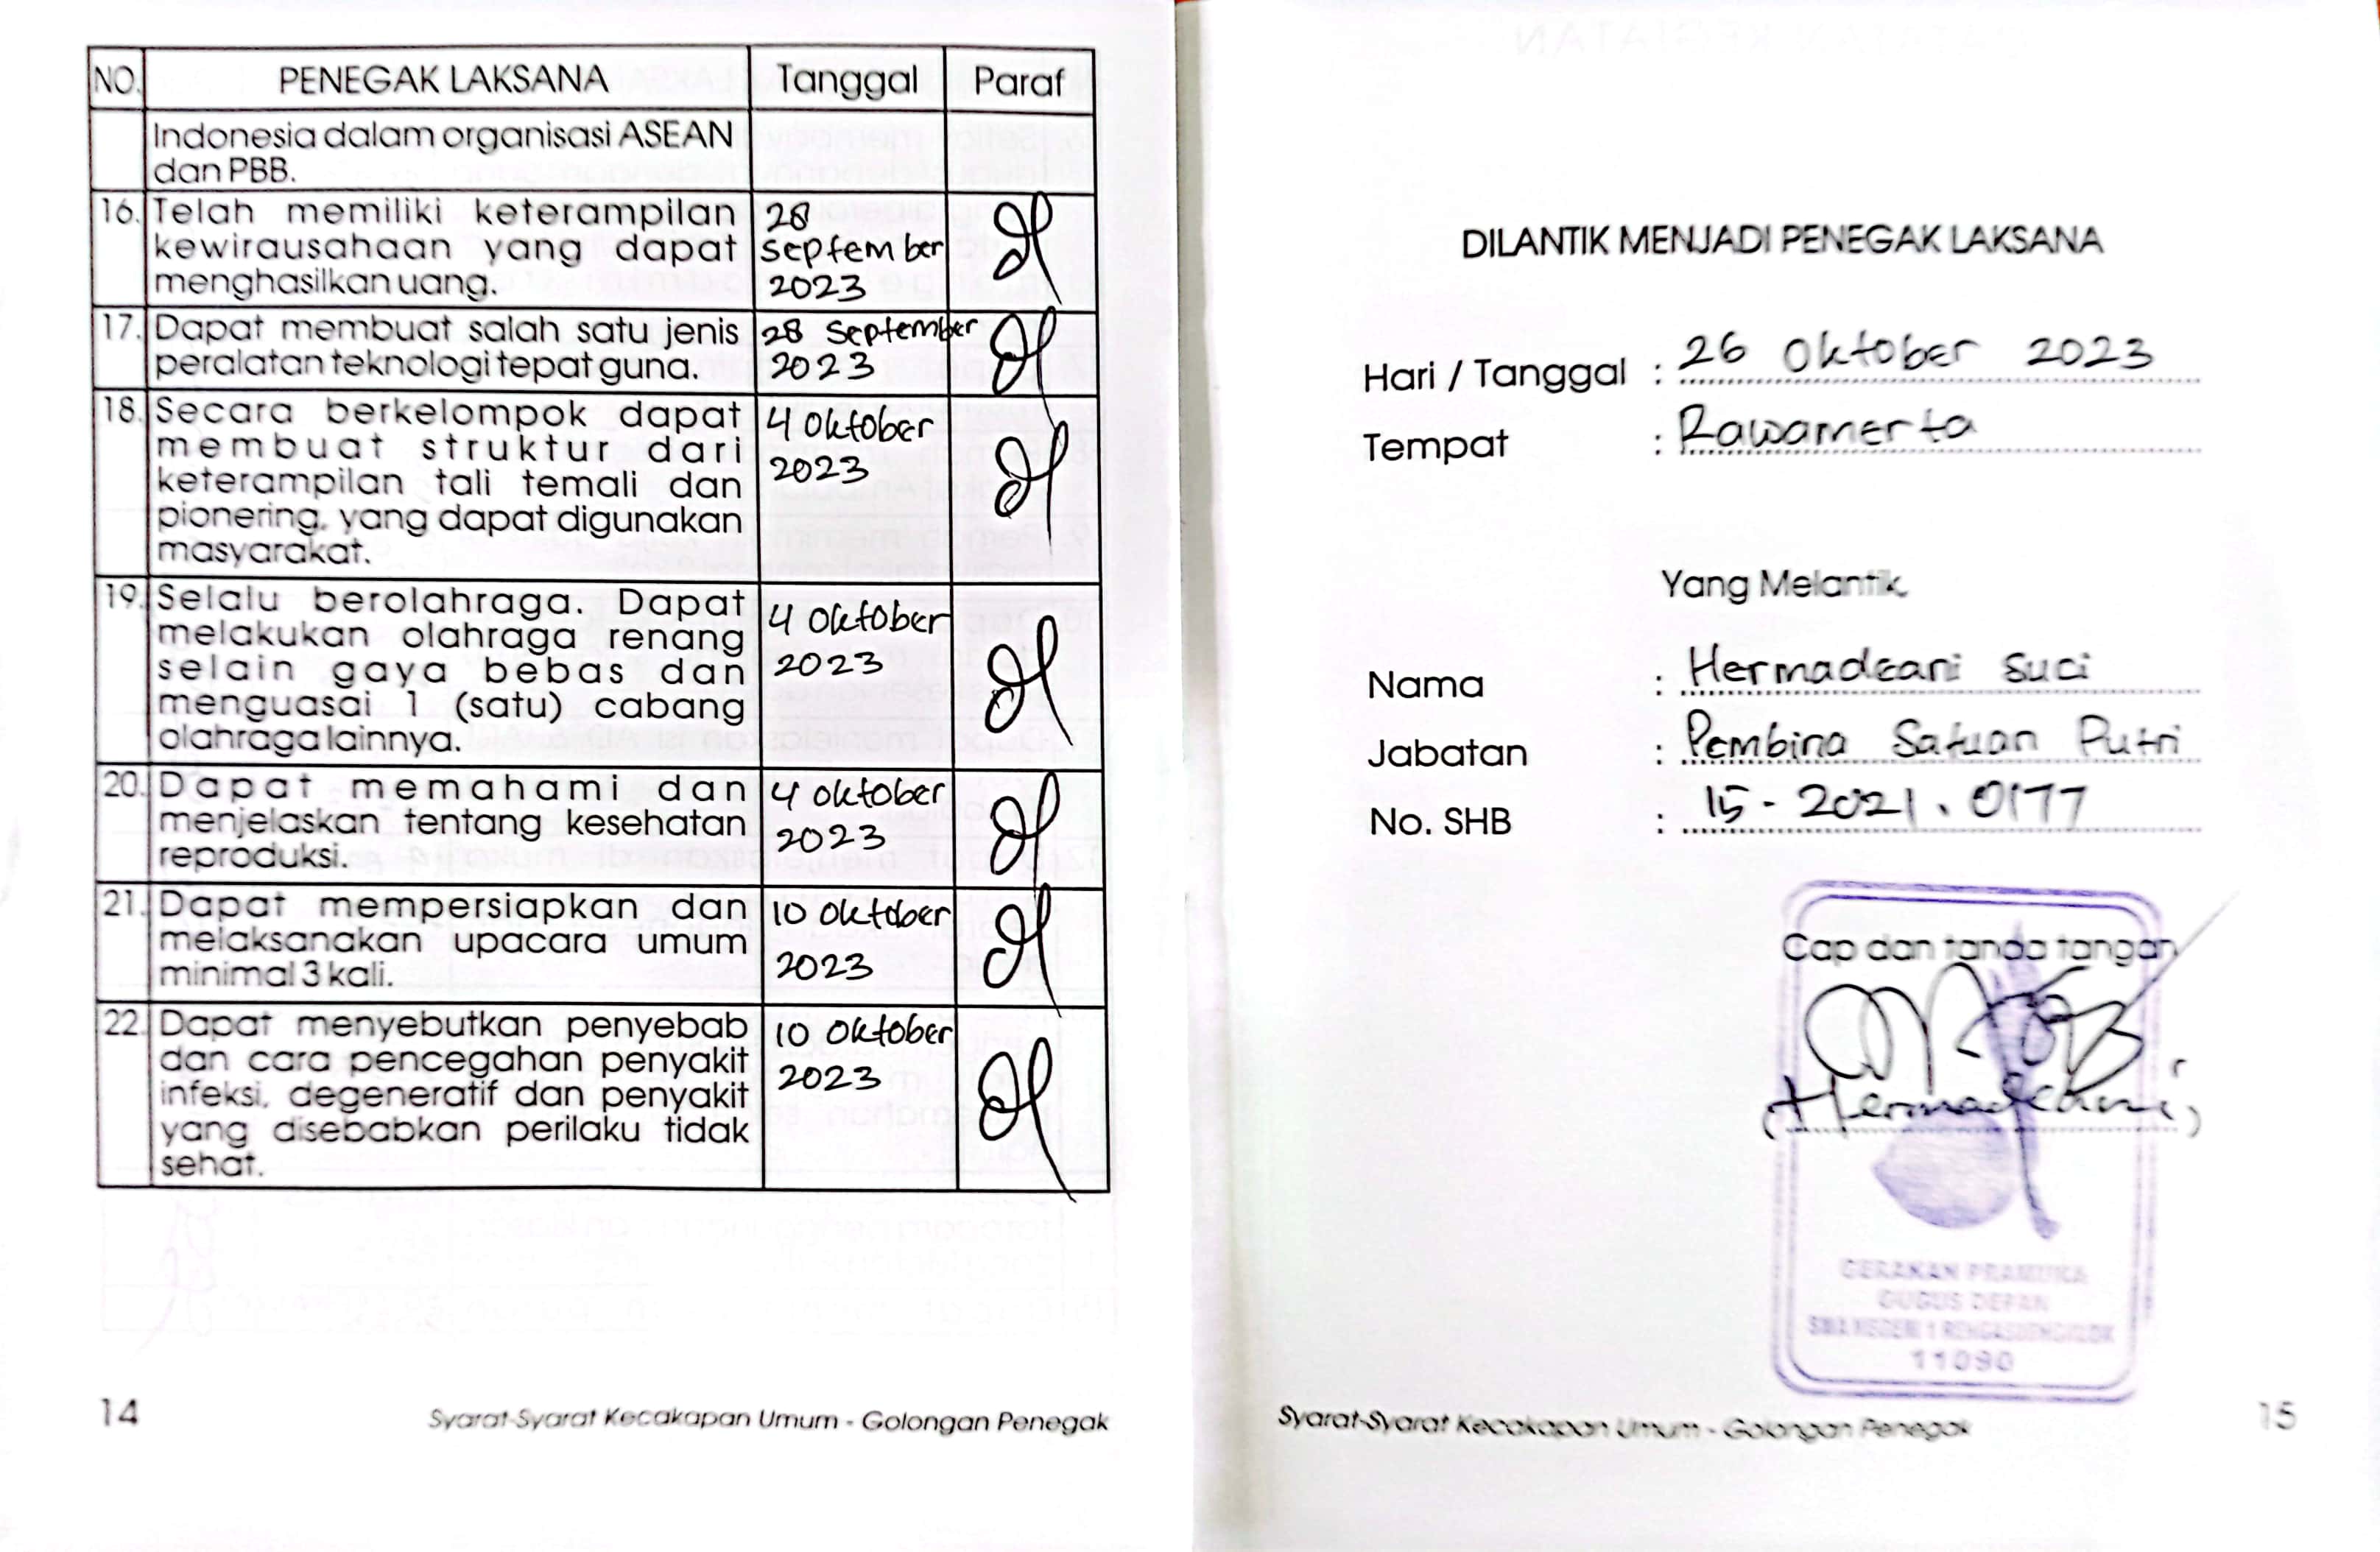 NO. PENEGAK LAKSANA Tanggal Paraf
Indonesia dalam organisasi ASEAN
dan PBB.
16. Telah memiliki keterampilan 28
kewirausahaan yang dapat September
menghasilkan uang. 2023
17. Dapat membuat salah satu jenis 28 September
peralatan teknologi tepat guna. 2023
18. Secara berkelompok dapat 4 Oktober
membuat struktur dari 2023
keterampilan tali temali dan
pionering, yang dapat digunakan
masyarakat.
19. Selalu berolahraga. Dapat 4 Oktober
melakukan olahraga renang 2023
selain gaya bebas dan
menguasai 1 (satu) cabang
olahraga lainnya.
20. Dapat memahami dan 4 Oktober
menjelaskan tentang kesehatan 2023
reproduksi.
21. Dapat mempersiapkan dan 10 Oktober
melaksanakan upacara umum 2023
minimal 3 kali.
22. Dapat menyebutkan penyebab 10 Oktober
dan cara pencegahan penyakit 2023
infeksi, degeneratif dan penyakit
yang disebabkan perilaku tidak
sehat.
14 Syarat-Syarat Kecakapan Umum - Golongan Penegak
DILANTIK MENJADI PENEGAK LAKSANA
Hari / Tanggal : 26 Oktober 2023
Tempat : Rawamerta
Yang Melantik,
Nama : Hermadeani Suci
Jabatan : Pembina Satuan Putri
No. SHB : 15 - 2021 . 0177
Cap dan tanda tangan
(Hermadeani)
GERAKAN PRAMUKA
GUGUS DEPAN
SMA NEGERI 1 RENGASDENGKLOK
11090
Syarat-Syarat Kecakapan Umum - Golongan Penegak 15